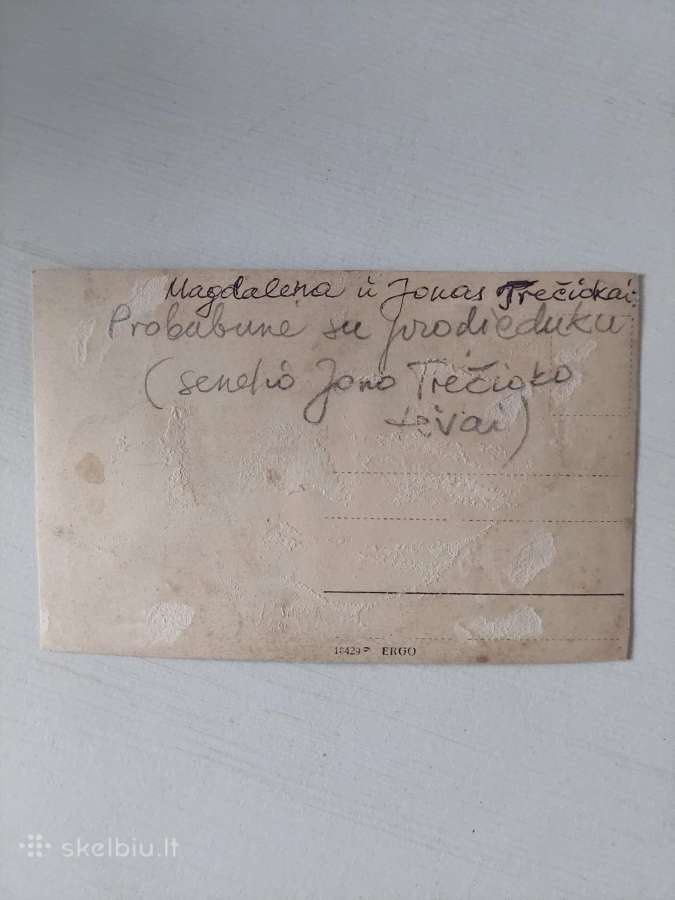 Magdalena ir Jonas Trečiokai.
Probabunė su prodieduku
(senelio Jono Trečioko
tėvai)
18429 ERGO
skelbiu.lt